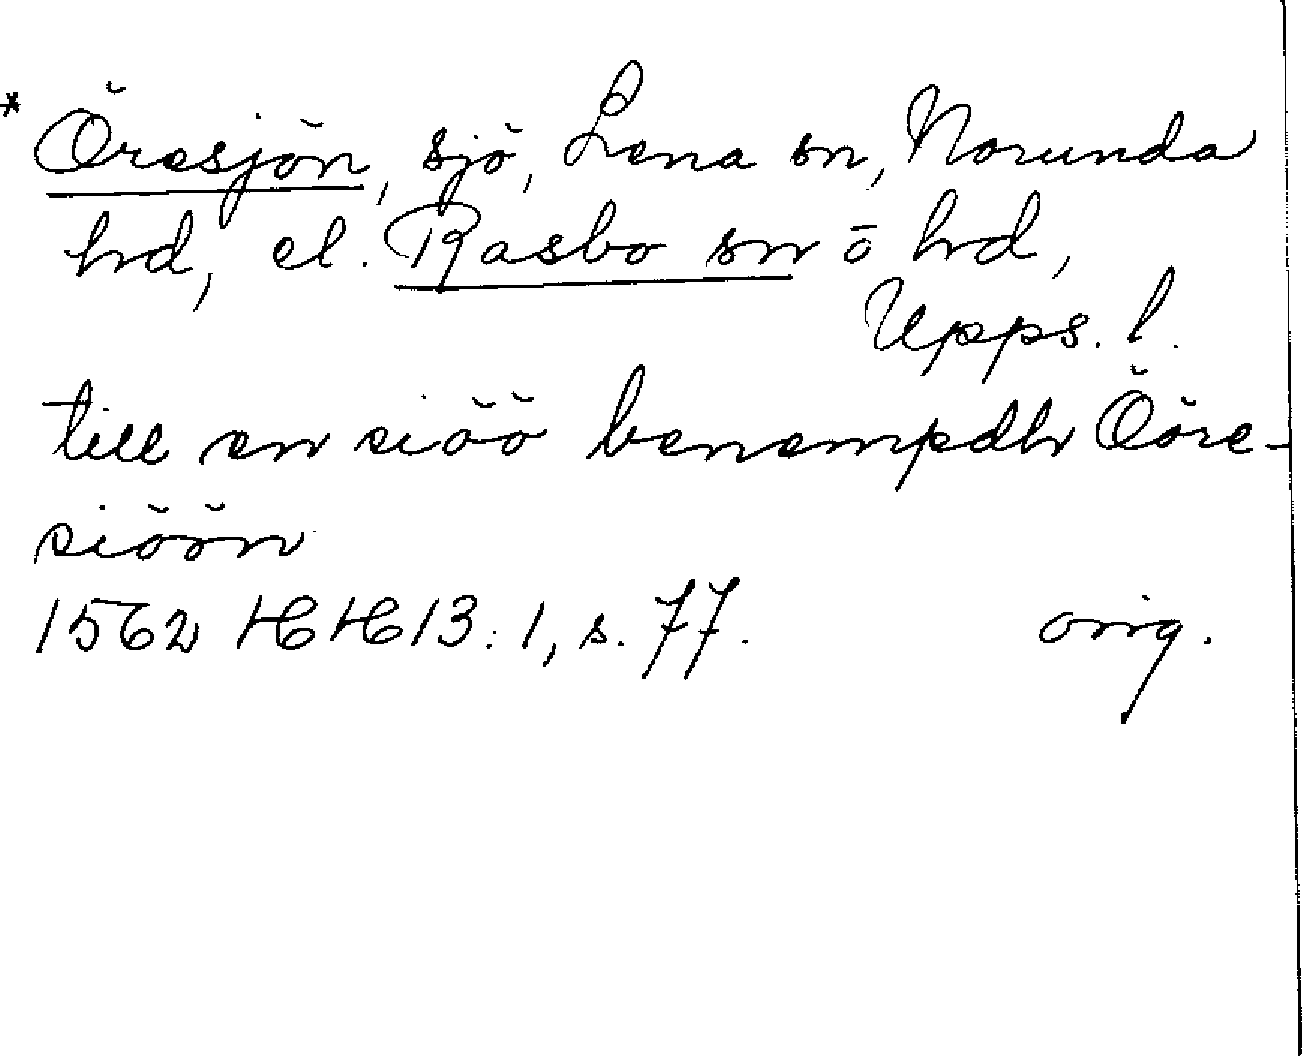 * Öresjön, sjö, Lena sn, Norunda
hd, el. Rasbo sn o hd,
Upps. l.
till en siöö benempdhÖöre-
siöön
1562 HH 13:1, s. 77. orig.